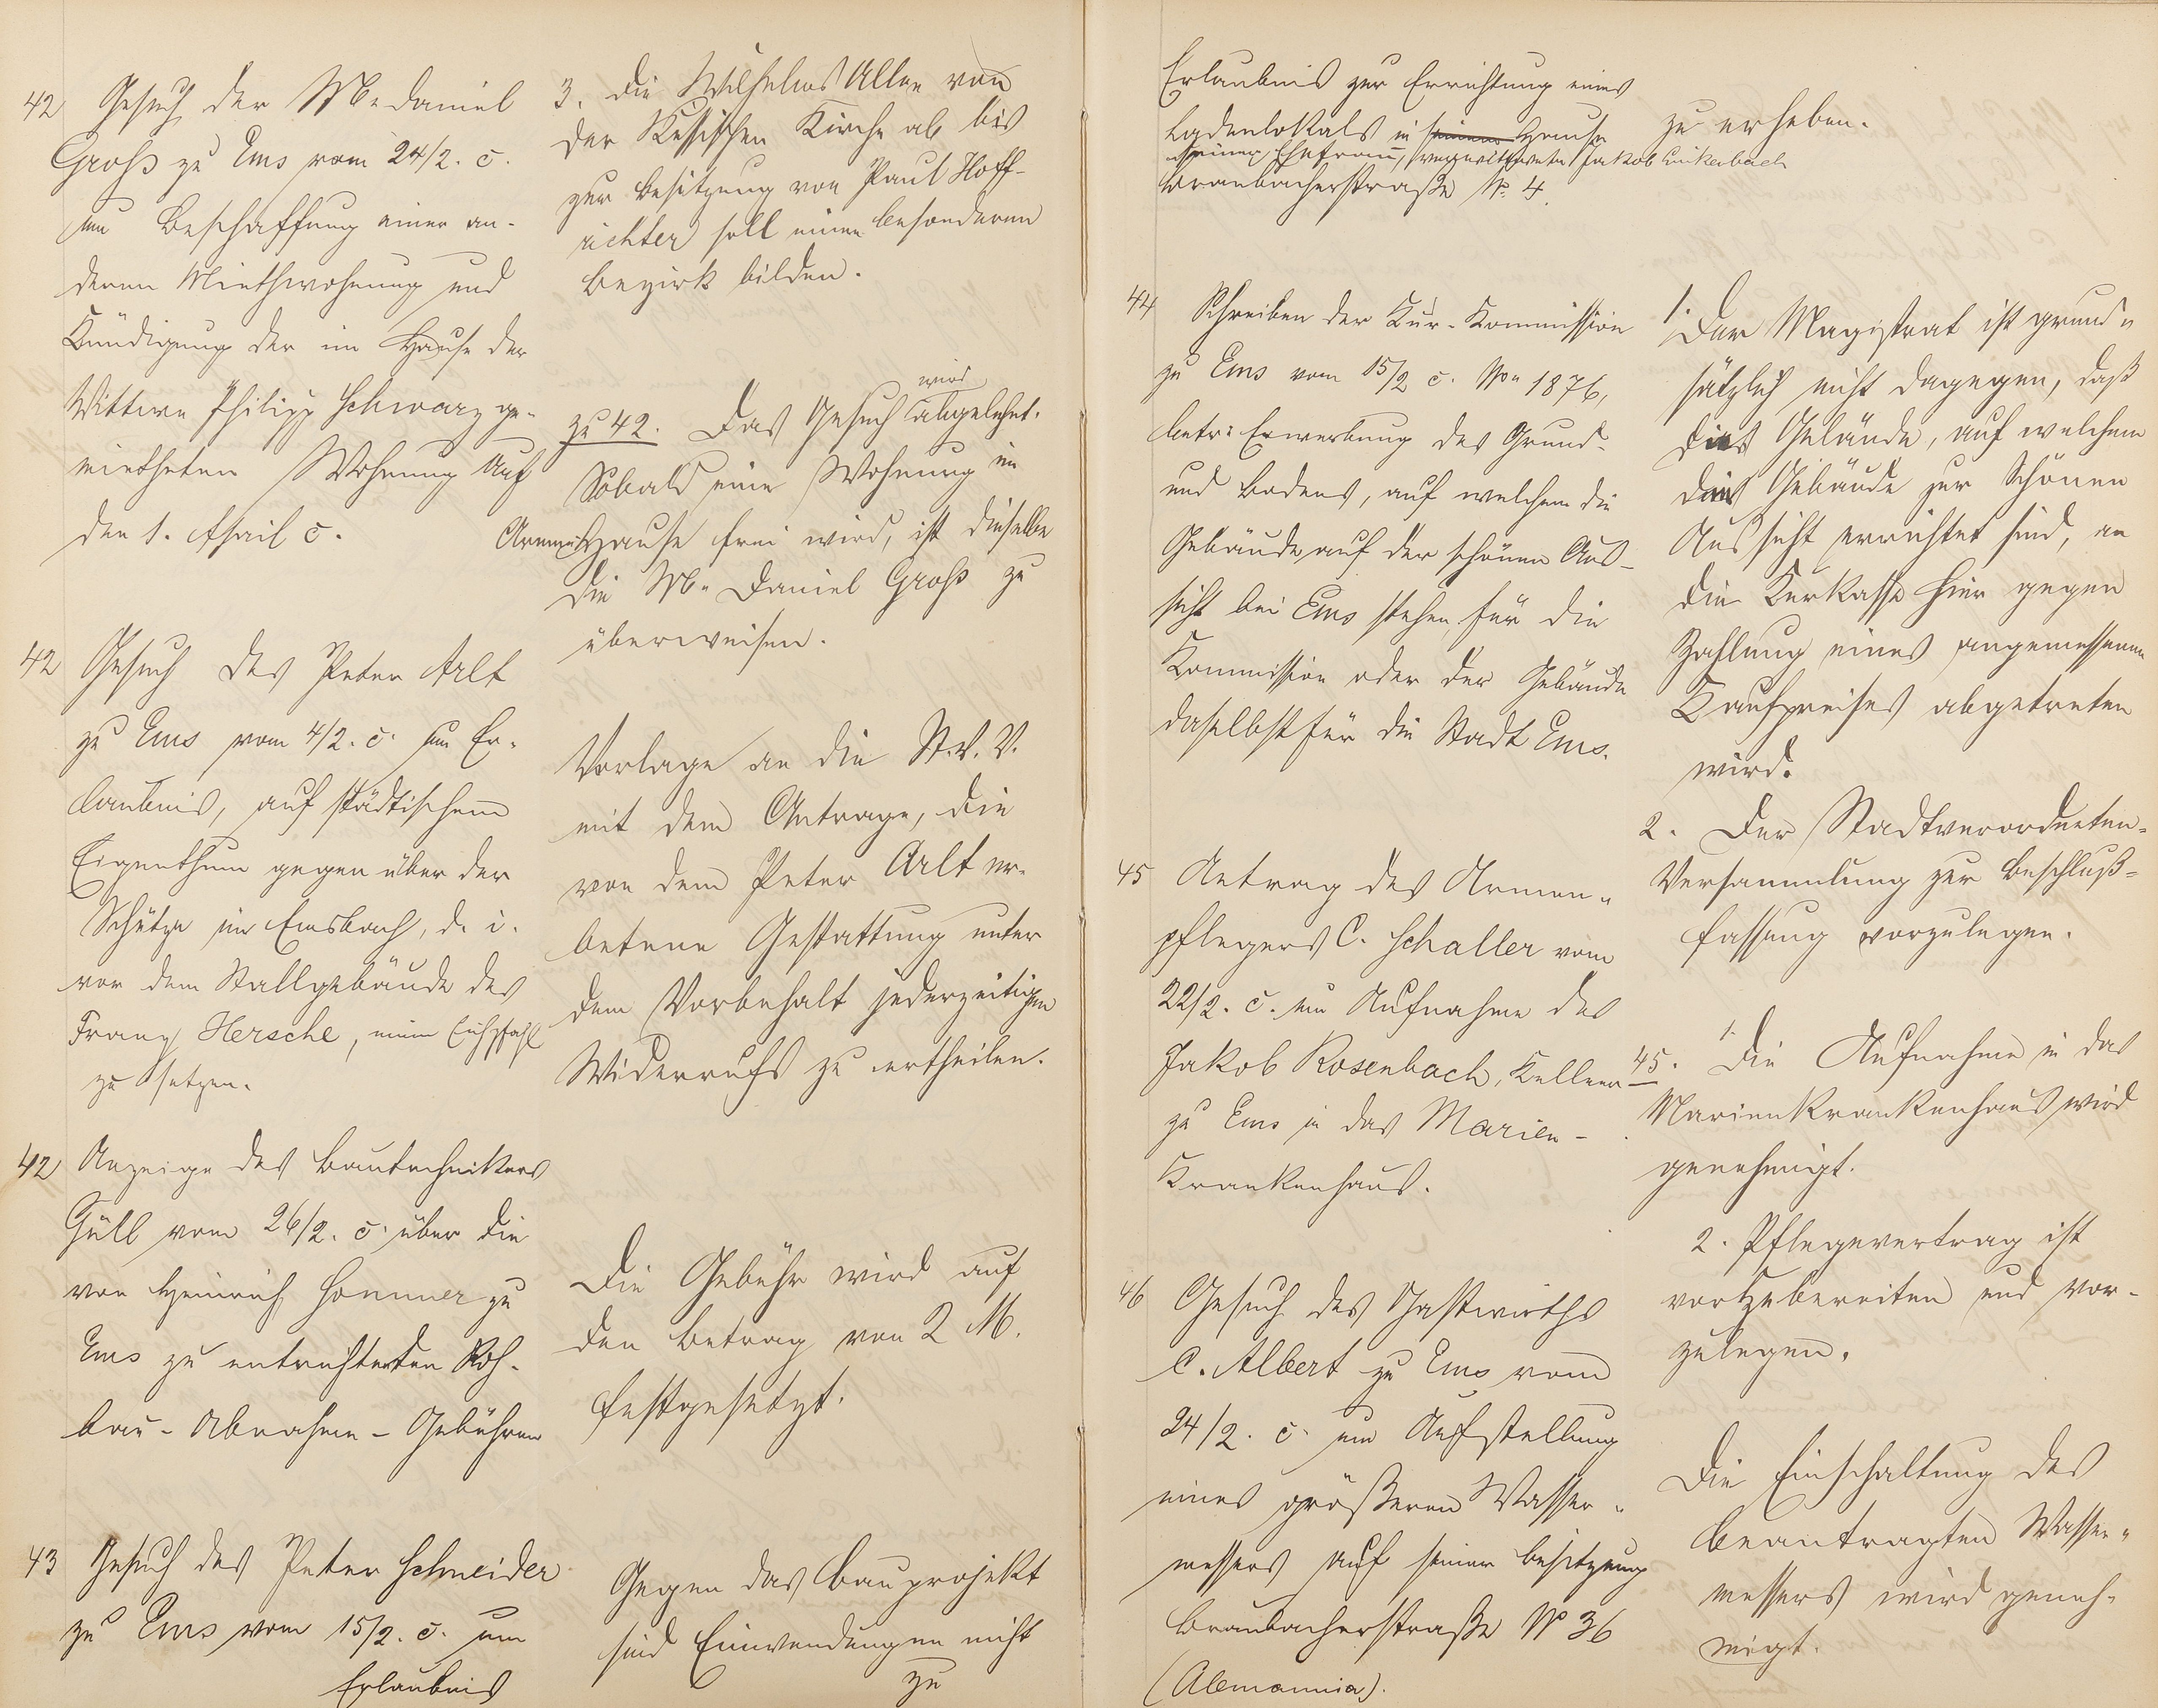 42 Gesuch der M. Daniel
Groß zu Ems vom 24/2. c.
um Beschaffung einer an-
deren Miethwohnung und
Kündigung der im Hause der
Wittwe Philipp Schwarz ge-
mietheten Wohnung auf
den 1. April c.
42 Gesuch des Peter Arlt
zu Ems vom 4/2. c. um Er-
laubnis, auf städtischem
Eigenthum gegenüber der
Schütze im Emsbach, d. i.
vor dem Stallgebäude des
Franz Hersche, einen
zu setzen.
42 Anzeige des Bautechnikers
Güll vom 26/2. c. über die
von Heinrich Hommer zu
Ems zu entrichtenden Roh-
bau-Abnahme-Gebühren
43 Gesuch des Peter Schneider
zu Ems vom 15/2. c. um
Erlaubnis
3. Die Wilhelms Allee von
der Russischen Kirche ab bis
zur Besitzung von Paul Hoff-
richter soll einen besonderen
Bezirk bilden.
zu 42. Das Gesuch wird abgelehnt.
Sobald eine Wohnung im
Armenhause frei wird, ist dieselbe
die M. Daniel Groß zu
überweisen.
Vorlage an die St. V. V.
mit dem Antrage, die
von dem Peter Arlt er-
betene Gestattung unter
dem Vorbehalt jederzeitigen
Widerrufs zu ertheilen.
Die Gebühr wird auf
den Betrag von 2 M.
festgesetzt.
Gegen das Bauprojekt
sind Einwendungen nicht
zu
Erlaubnis zur Errichtung eines
Ladenlokals in seinem Hause
seiner Ehefrau, verwittweten Jakob Linkerbach
Braubacherstraße No. 4.
44 Schreiben der Kur-Kommission
zu Ems vom 15/2 c. No. 1876,
betr: Erwerbung des Grund-
und Bodens, auf welchem die
Gebäude auf der schönen Aus-
sicht bei Ems stehen für die
Kommission oder der Gebäude
daselbst für die Stadt Ems.
45 Antrag des Armen-
pflegers C. Schaller vom
22/2. c. um Aufnahme des
Jakob Rosenbach, Kellner
zu Ems in das Marien-
Krankenhaus.
46 Gesuch des Gastwirths
C. Albert zu Ems vom
24/2. c. um Aufstellung
eines größeren Wasser-
messers auf seiner Besitzung
Braubacherstraße No 36
(Alemannia).
zu erheben.
1. Der Magistrat ist grund-
sätzlich nicht dagegen, daß
das Gelände, auf welchem
die Gebäude zur Schönen
Aussicht errichtet sind, an
die Kurkasse hier gegen
Zahlung eines angemessenen
Kaufpreises abgetreten
wird.
2. Der Stadtverordneten-
Versammlung zur Beschluß-
fassung vorzulegen.
45. 1. Die Aufnahme in das
Marienkrankenhaus wird
genehmigt.
2. Pflegevertrag ist
vorzubereiten und vor-
zulegen.
Die Einschaltung des
beantragten Wasser-
messers wird geneh-
migt.